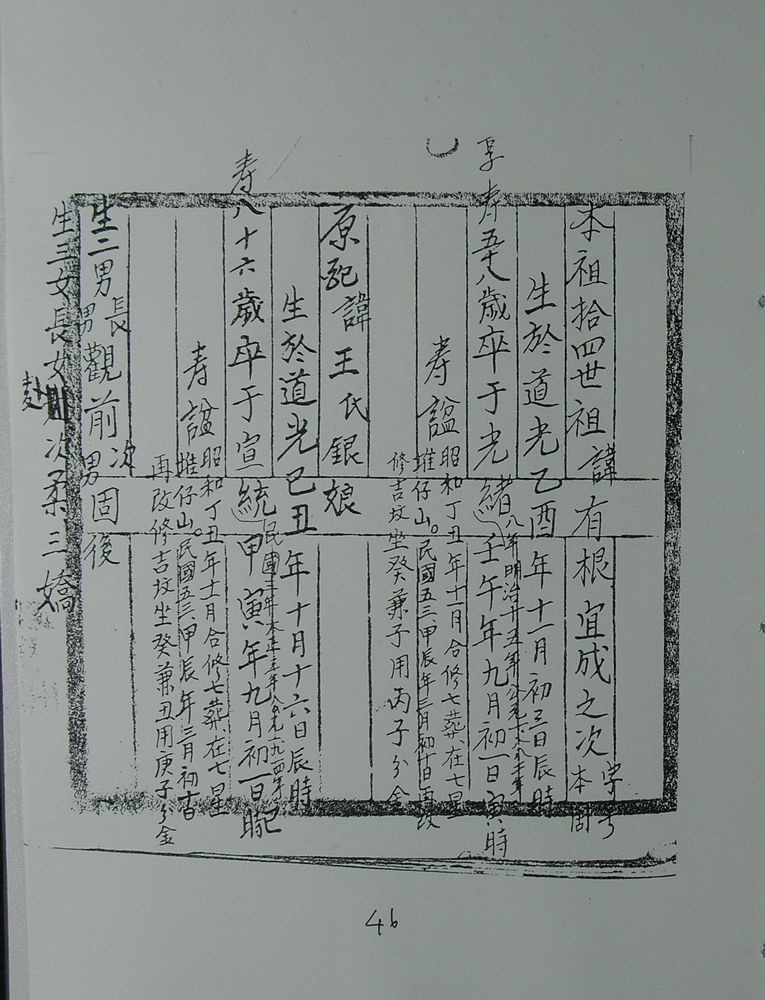 本祖拾四世祖諱有根宜成之次
字号
本周
生於道光乙酉年十一月初三日辰時
享寿五十八歲卒于光緒壬午年九月初一日寅時
八年明治十五年
寿諡
昭和丁丑年十一月合修七葬在七星
堆仔山。民國五三甲辰年三月初十日再改
修吉坟坐癸兼子用丙子分金
原配諱王氏銀娘
生於道光己丑年十月十六日辰時
寿八十六歲卒于宣統甲寅年九月初一日巳時
民國三年大正三年公元一九一四年
寿諡
昭和丁丑年十一月合修七葬在七星
堆仔山。民國五三甲辰年三月初十日
再改修吉坟坐癸兼丑用庚子分金
生二男長男觀前次男固後
生三女長女次柔三嬌
46